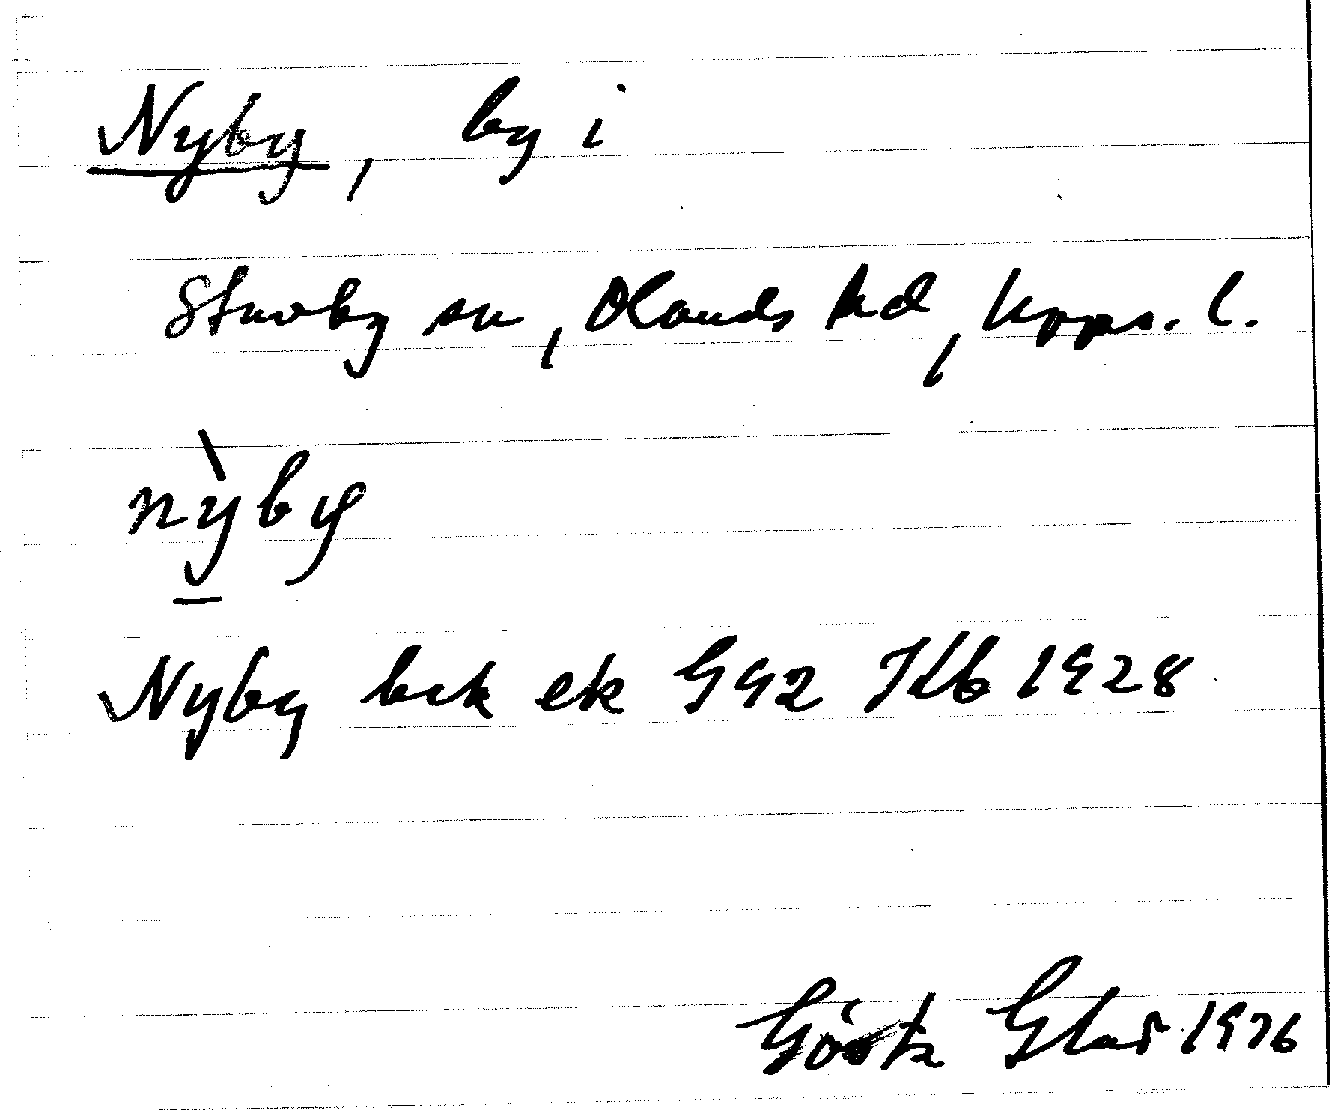 Nyby, by i
Stavby sn, Olands hd, Upps. l.
nỳby
Nyby bek ek 992 Kb 1928
Gösta 1976